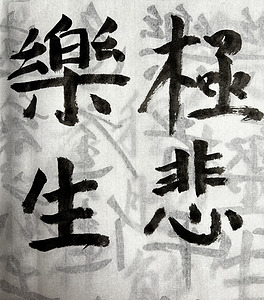 極悲
樂生